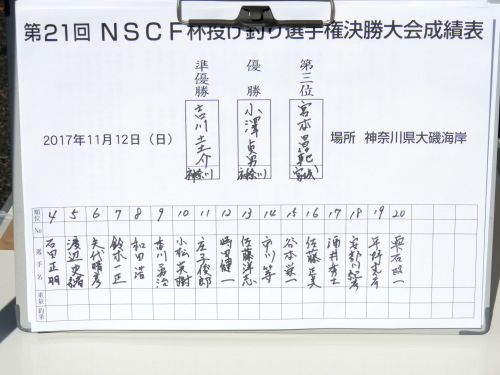 第21回 NSCF杯投げ釣り選手権決勝大会成績表
準優勝 優勝 第三位
吉川 小澤貞男 宮本昌範
神奈川 神奈川 宮城
2017年11月12日(日)
場所 神奈川県大磯海岸
順位 No 4 5 6 7 8 9 10 11 12 13 14 15 16 17 18 19 20
選手名 石田正明 渡辺 矢代晴彦 鈴木一正 和田浩 吉川 小松英樹 庄子俊郎 時田健一 佐藤洋志 市川等 谷本栄一 佐藤正 酒井 平野 雫石政一
重量 釣果